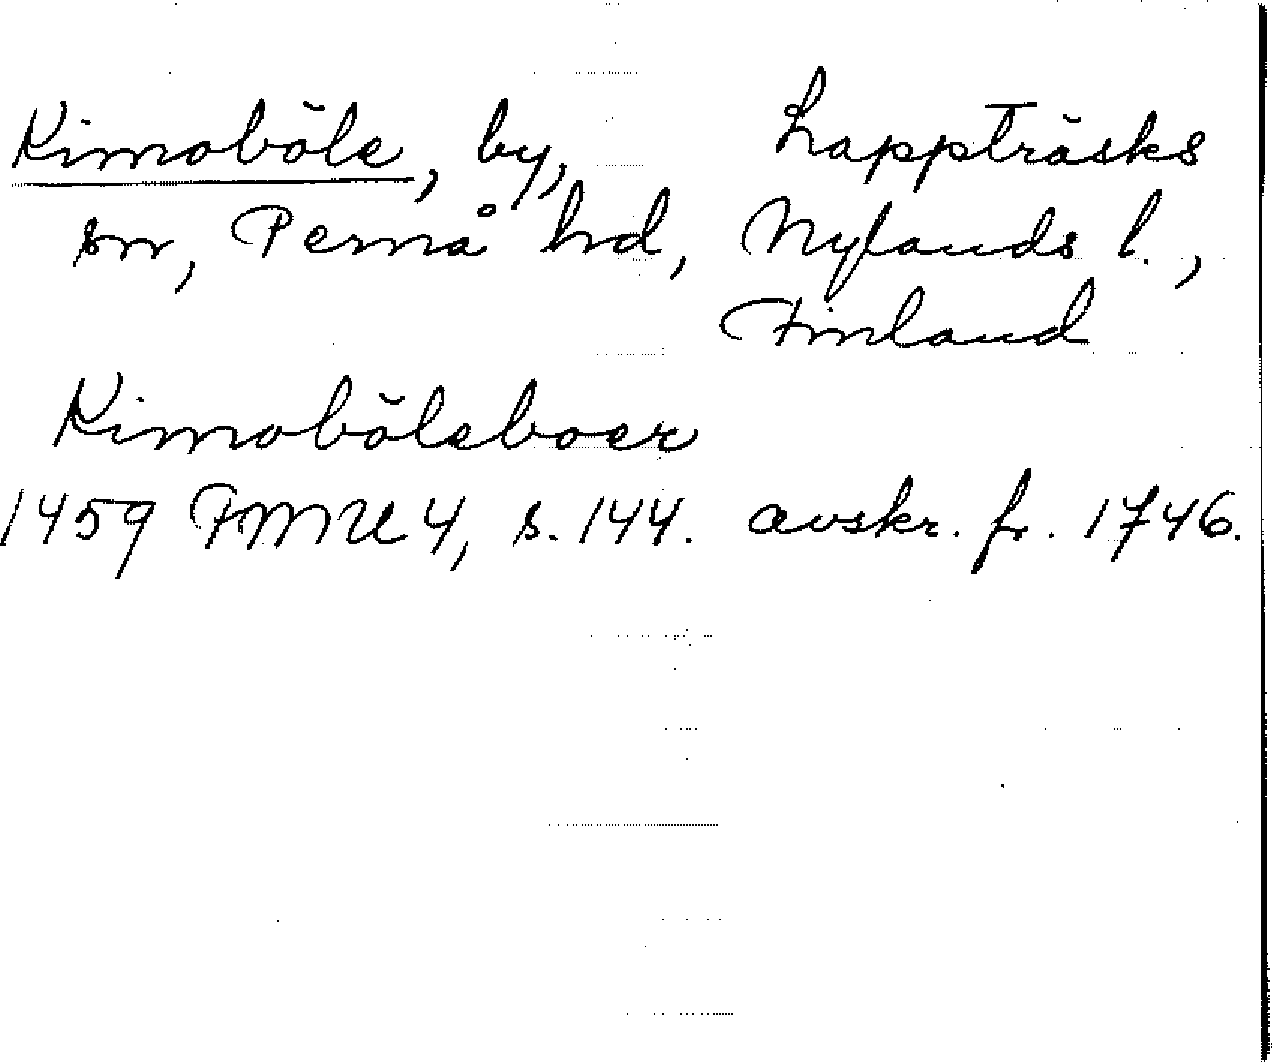 Kimoböle, by, Lappträsks
sn, Pernå hd, Nylands l.,
Finland
Kimoböleboer
1459 FMU 4, s. 144. avskr. fr. 1746.